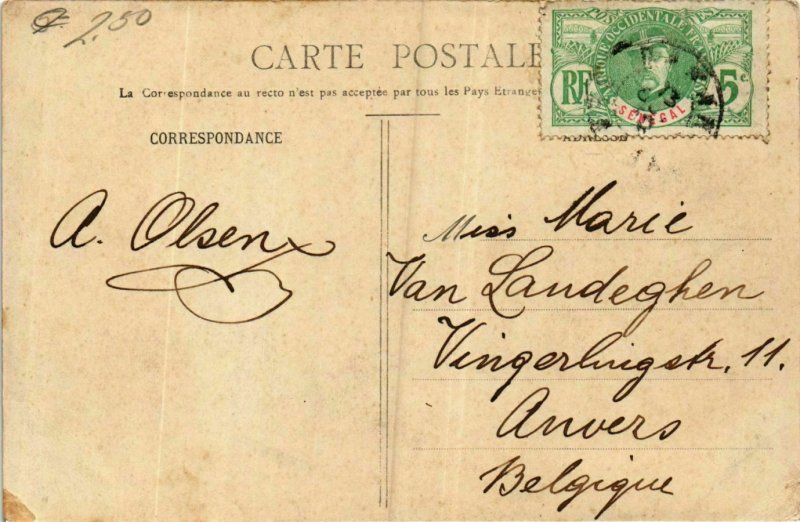 2.50
CARTE POSTALE
La Correspondance au recto n'est pas acceptée par tous les Pays Etrange
CORRESPONDANCE
ADRESSE
AFRIQUE OCCIDENTALE FRANÇAISE
POSTES
RF
5 c.
SÉNÉGAL
A. Olsen
Miss Marie
Van Landeghen
Vingerlingstr. 11.
Anvers
Belgique